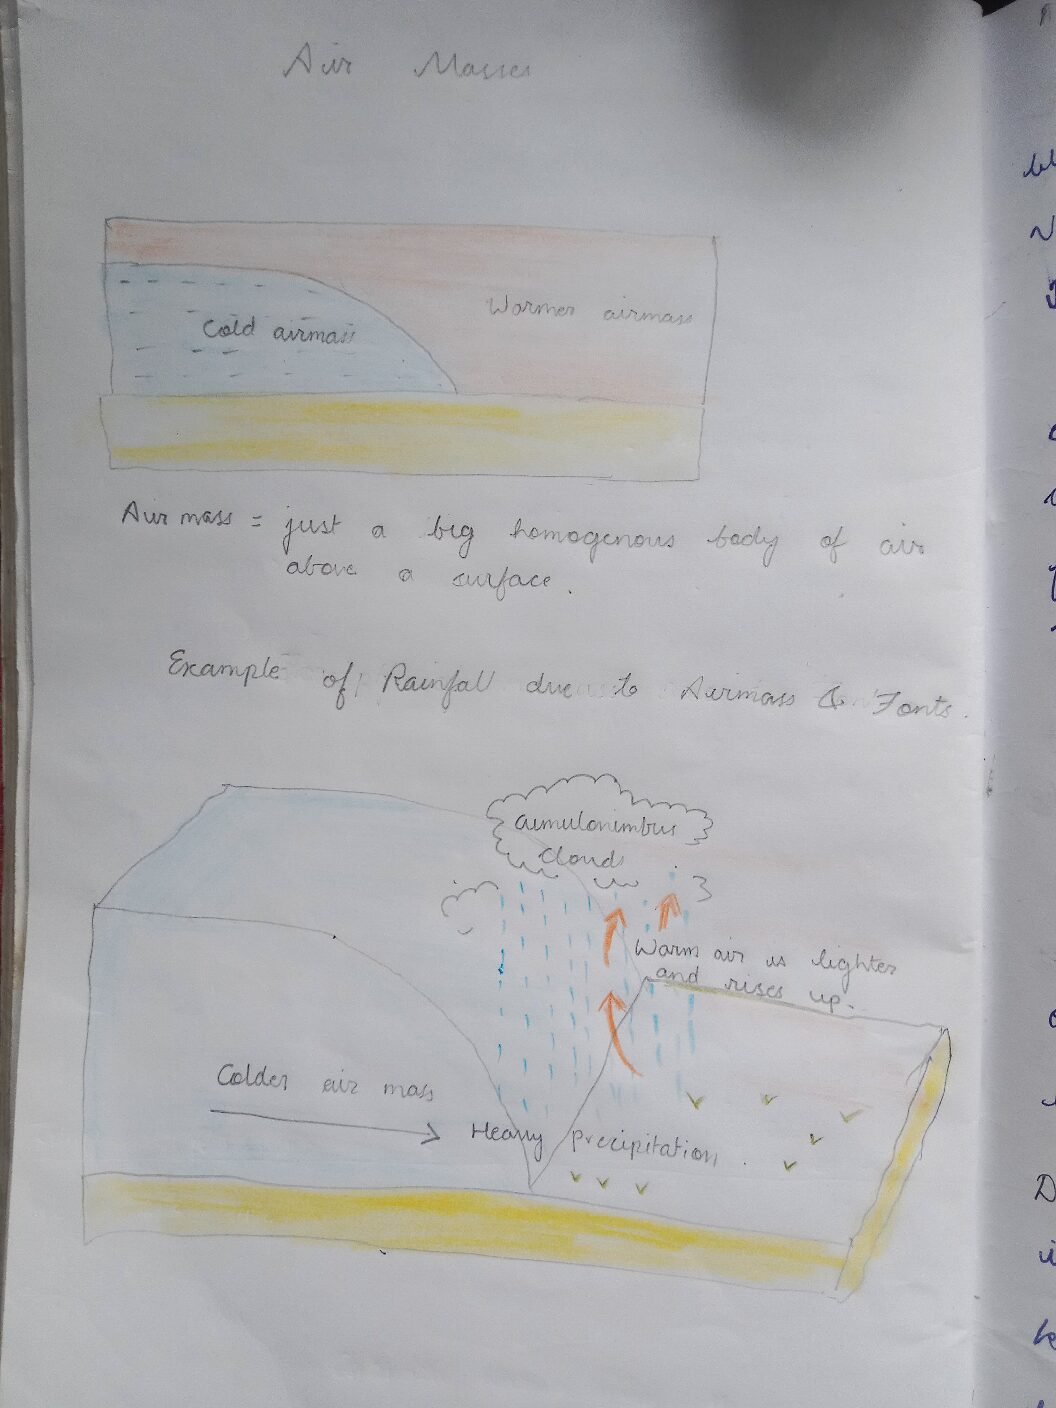 Air Masses
Cold airmass
Warmer airmass
Air mass = just a big homogenous body of air
above a surface.
Example of Rainfall due to Airmass & Fonts.
Cumulonimbus
clouds
Warm air is lighter
and rises up.
Colder air mass
Heavy precipitation.